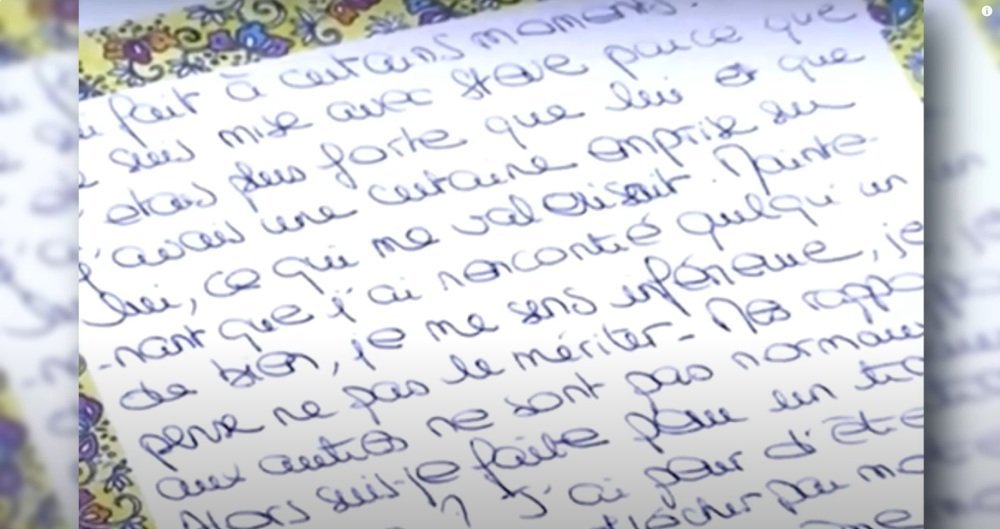 fait à certains moments.
suis mise avec Steve parce que
étais plus forte que lui et que
j'avais une certaine emprise sur
lui, ce qui me valorisait. Mainte-
-nant que j'ai rencontré quelqu'un
de bien, je me sens inférieure, je
pense ne pas le mériter - Mes rappo
aux autres ne sont pas normaux
Alors suis-je faite pour un
? J'ai peur d'être
par